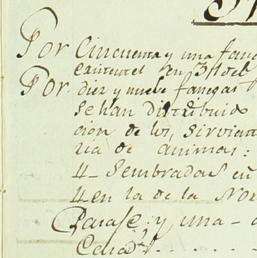 Por Cincuenta y una fane
existentes en 31 de
Por diez y nueve fanegas
se han distribuido
cion de los sirvien
ria de animas:
4 Sembradas en
4 en la de la Nor
y una